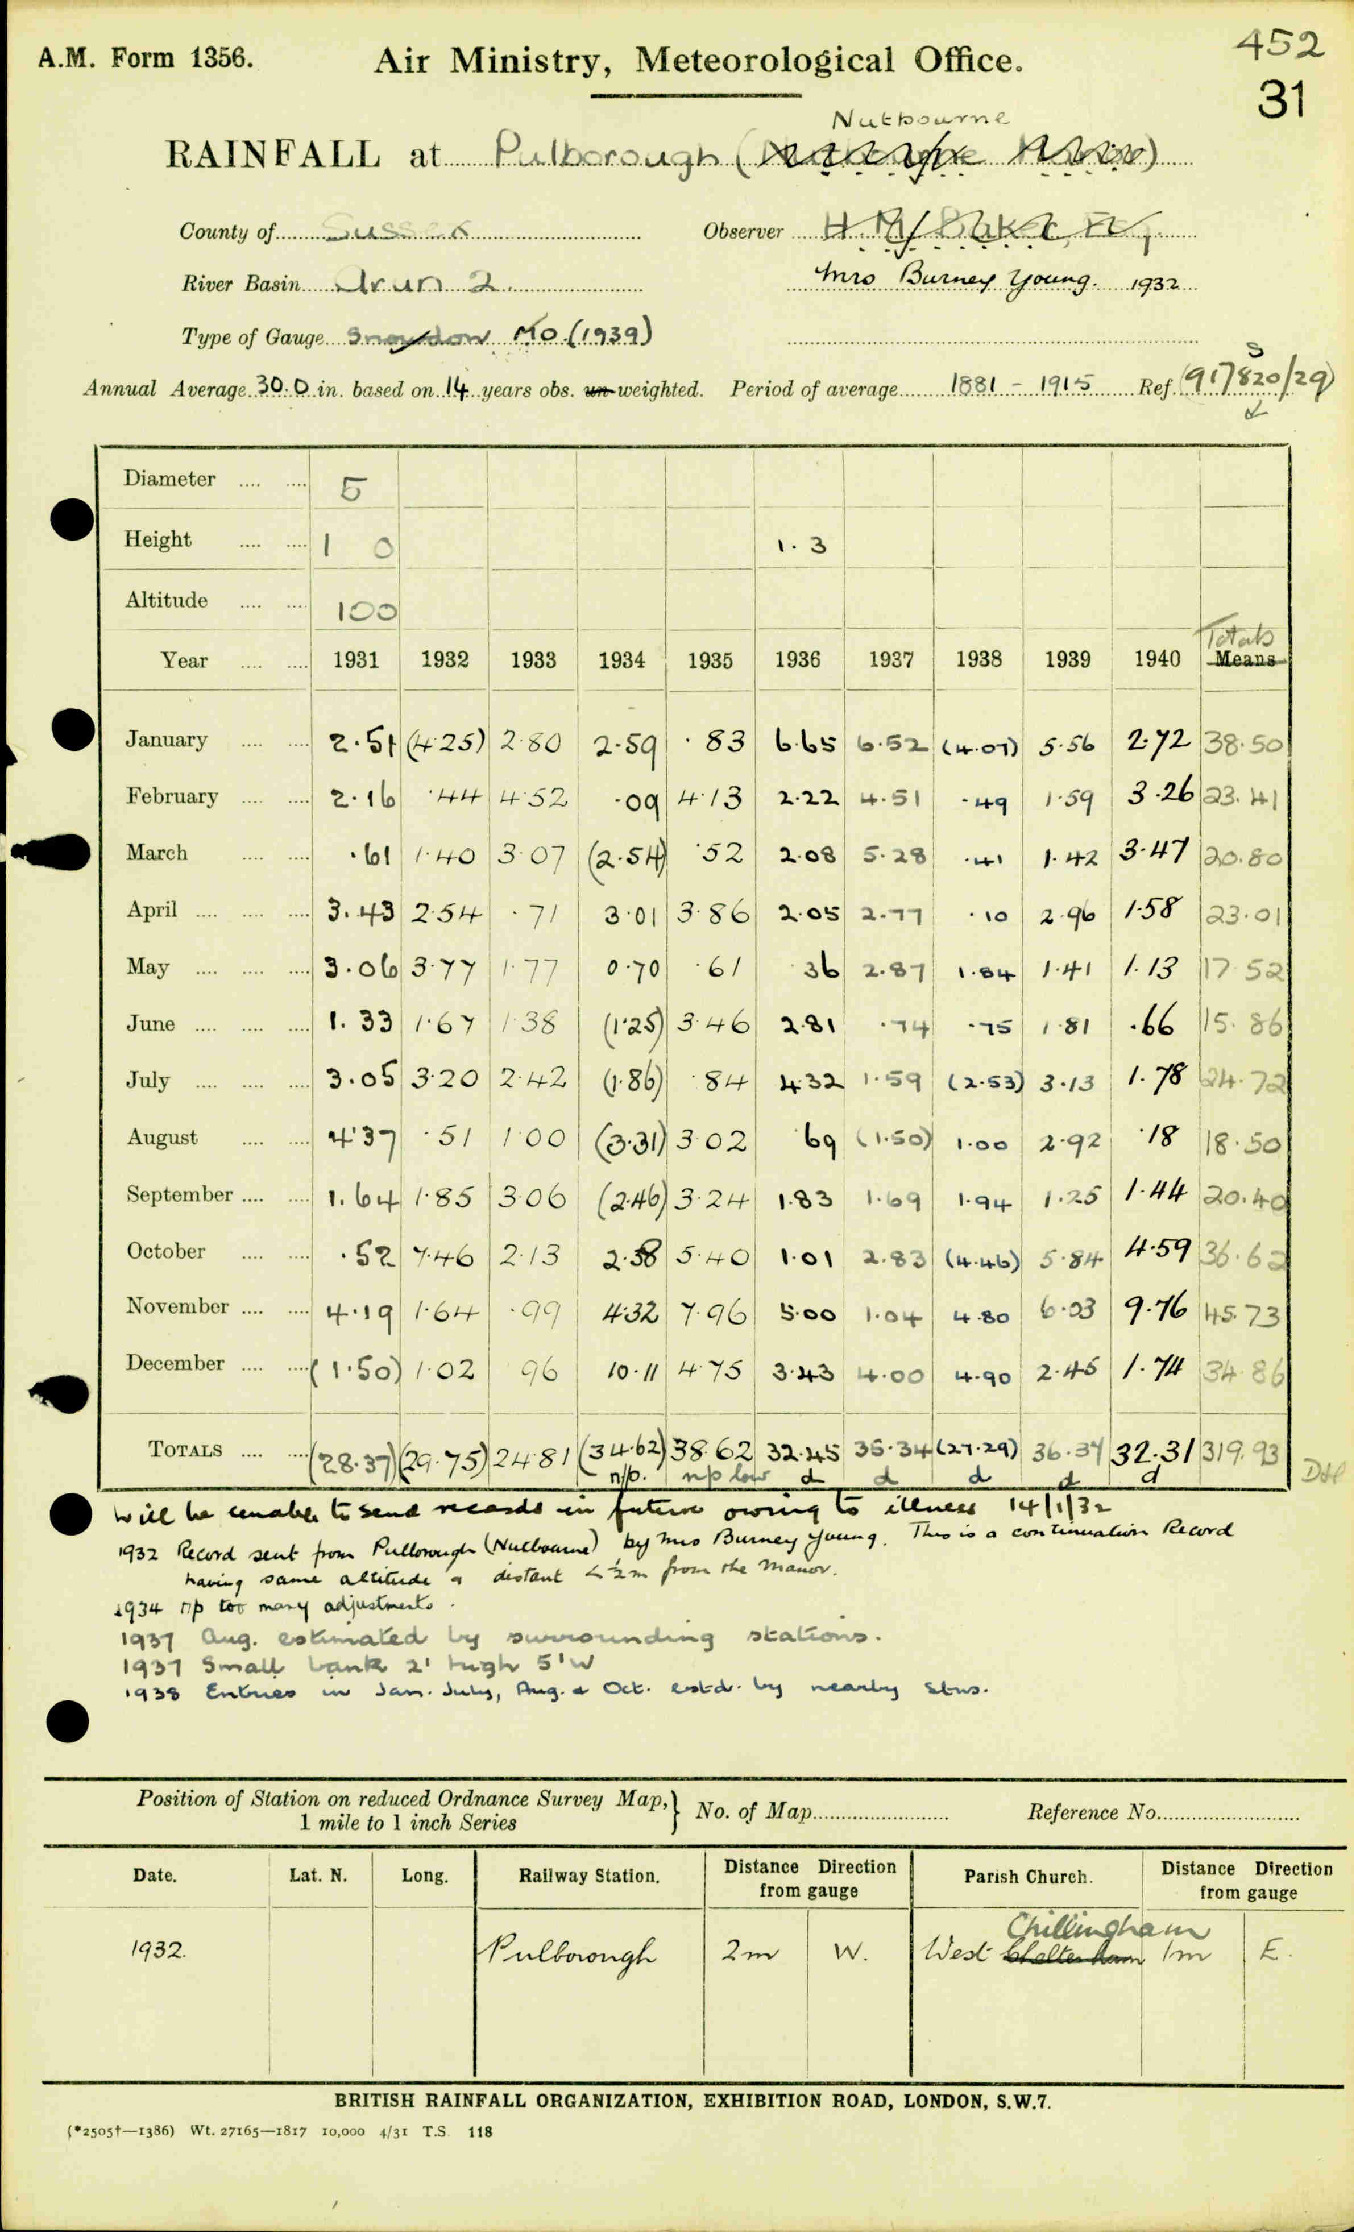 452
A.M. Form 1356. Air Ministry, Meteorological Office.
31
Nutbourne
RAINFALL at Pulborough ( )
County of Sussex Observer H. M. Baker, Esq.
River Basin Arun 2. Mrs Burney Young. 1932
Type of Gauge Snowdon MO (1939)
Annual Average 30.0 in. based on 14 years obs. un-weighted. Period of average 1881 - 1915 Ref (917820/29)
S
Diameter .... .... 5
Height .... .... 1 0 1.3
Altitude .... .... 100
Totals
Year .... .... 1931 1932 1933 1934 1935 1936 1937 1938 1939 1940 Means
January .... .... 2.51 (4.25) 2.80 2.59 .83 6.65 6.52 (4.07) 5.56 2.72 38.50
February .... .... 2.16 .44 4.52 .09 4.13 2.22 4.51 .49 1.59 3.26 23.41
March .... .... .61 1.40 3.07 (2.54) .52 2.08 5.28 .41 1.42 3.47 20.80
April .... .... .... 3.43 2.54 .71 3.01 3.86 2.05 2.77 .10 2.96 1.58 23.01
May .... .... .... 3.06 3.77 1.77 0.70 .61 .36 2.87 1.84 1.41 1.13 17.52
June .... .... .... 1.33 1.67 1.38 (1.25) 3.46 2.81 .74 .75 1.81 .66 15.86
July .... .... .... 3.05 3.20 2.42 (1.86) .84 4.32 1.59 (2.53) 3.13 1.78 24.72
August .... .... 4.37 .51 1.00 (3.31) 3.02 .69 (1.50) 1.00 2.92 .18 18.50
September .... .... 1.64 1.85 3.06 (2.46) 3.24 1.83 1.69 1.94 1.25 1.44 20.40
October .... .... .52 7.46 2.13 2.38 5.40 1.01 2.83 (4.46) 5.84 4.59 36.62
November .... .... 4.19 1.64 .99 4.32 7.96 5.00 1.04 4.80 6.03 9.76 45.73
December .... .... (1.50) 1.02 96 10.11 4.75 3.43 4.00 4.90 2.45 1.74 34.86
TOTALS .... .... (28.37) (29.75) 24.81 (34.62) 38.62 32.45 35.34 (27.29) 36.37 32.31 319.93
n/p. n/p low d d d d d
Will be unable to send records in future owing to illness 14/1/32
1932 Record sent from Pulborough (Nutbourne) by Mrs Burney Young. This is a continuation Record
having same altitude & distant <½m from the Manor.
1934 n/p too many adjustments.
1937 Aug. estimated by surrounding stations.
1937 Small bank 2' high 5'W
1938 Entries in Jan. July, Aug. & Oct. estd. by nearby stns.
Position of Station on reduced Ordnance Survey Map, } No. of Map Reference No.
1 mile to 1 inch Series
Date. Lat. N. Long. Railway Station. Distance Direction from gauge Parish Church. Distance Direction from gauge
Chillingham
1932. Pulborough 2m W. West Chelterham 1m E.
BRITISH RAINFALL ORGANIZATION, EXHIBITION ROAD, LONDON, S.W.7.
(*2505†—1386) Wt. 27165—1817 10,000 4/31 T.S. 118